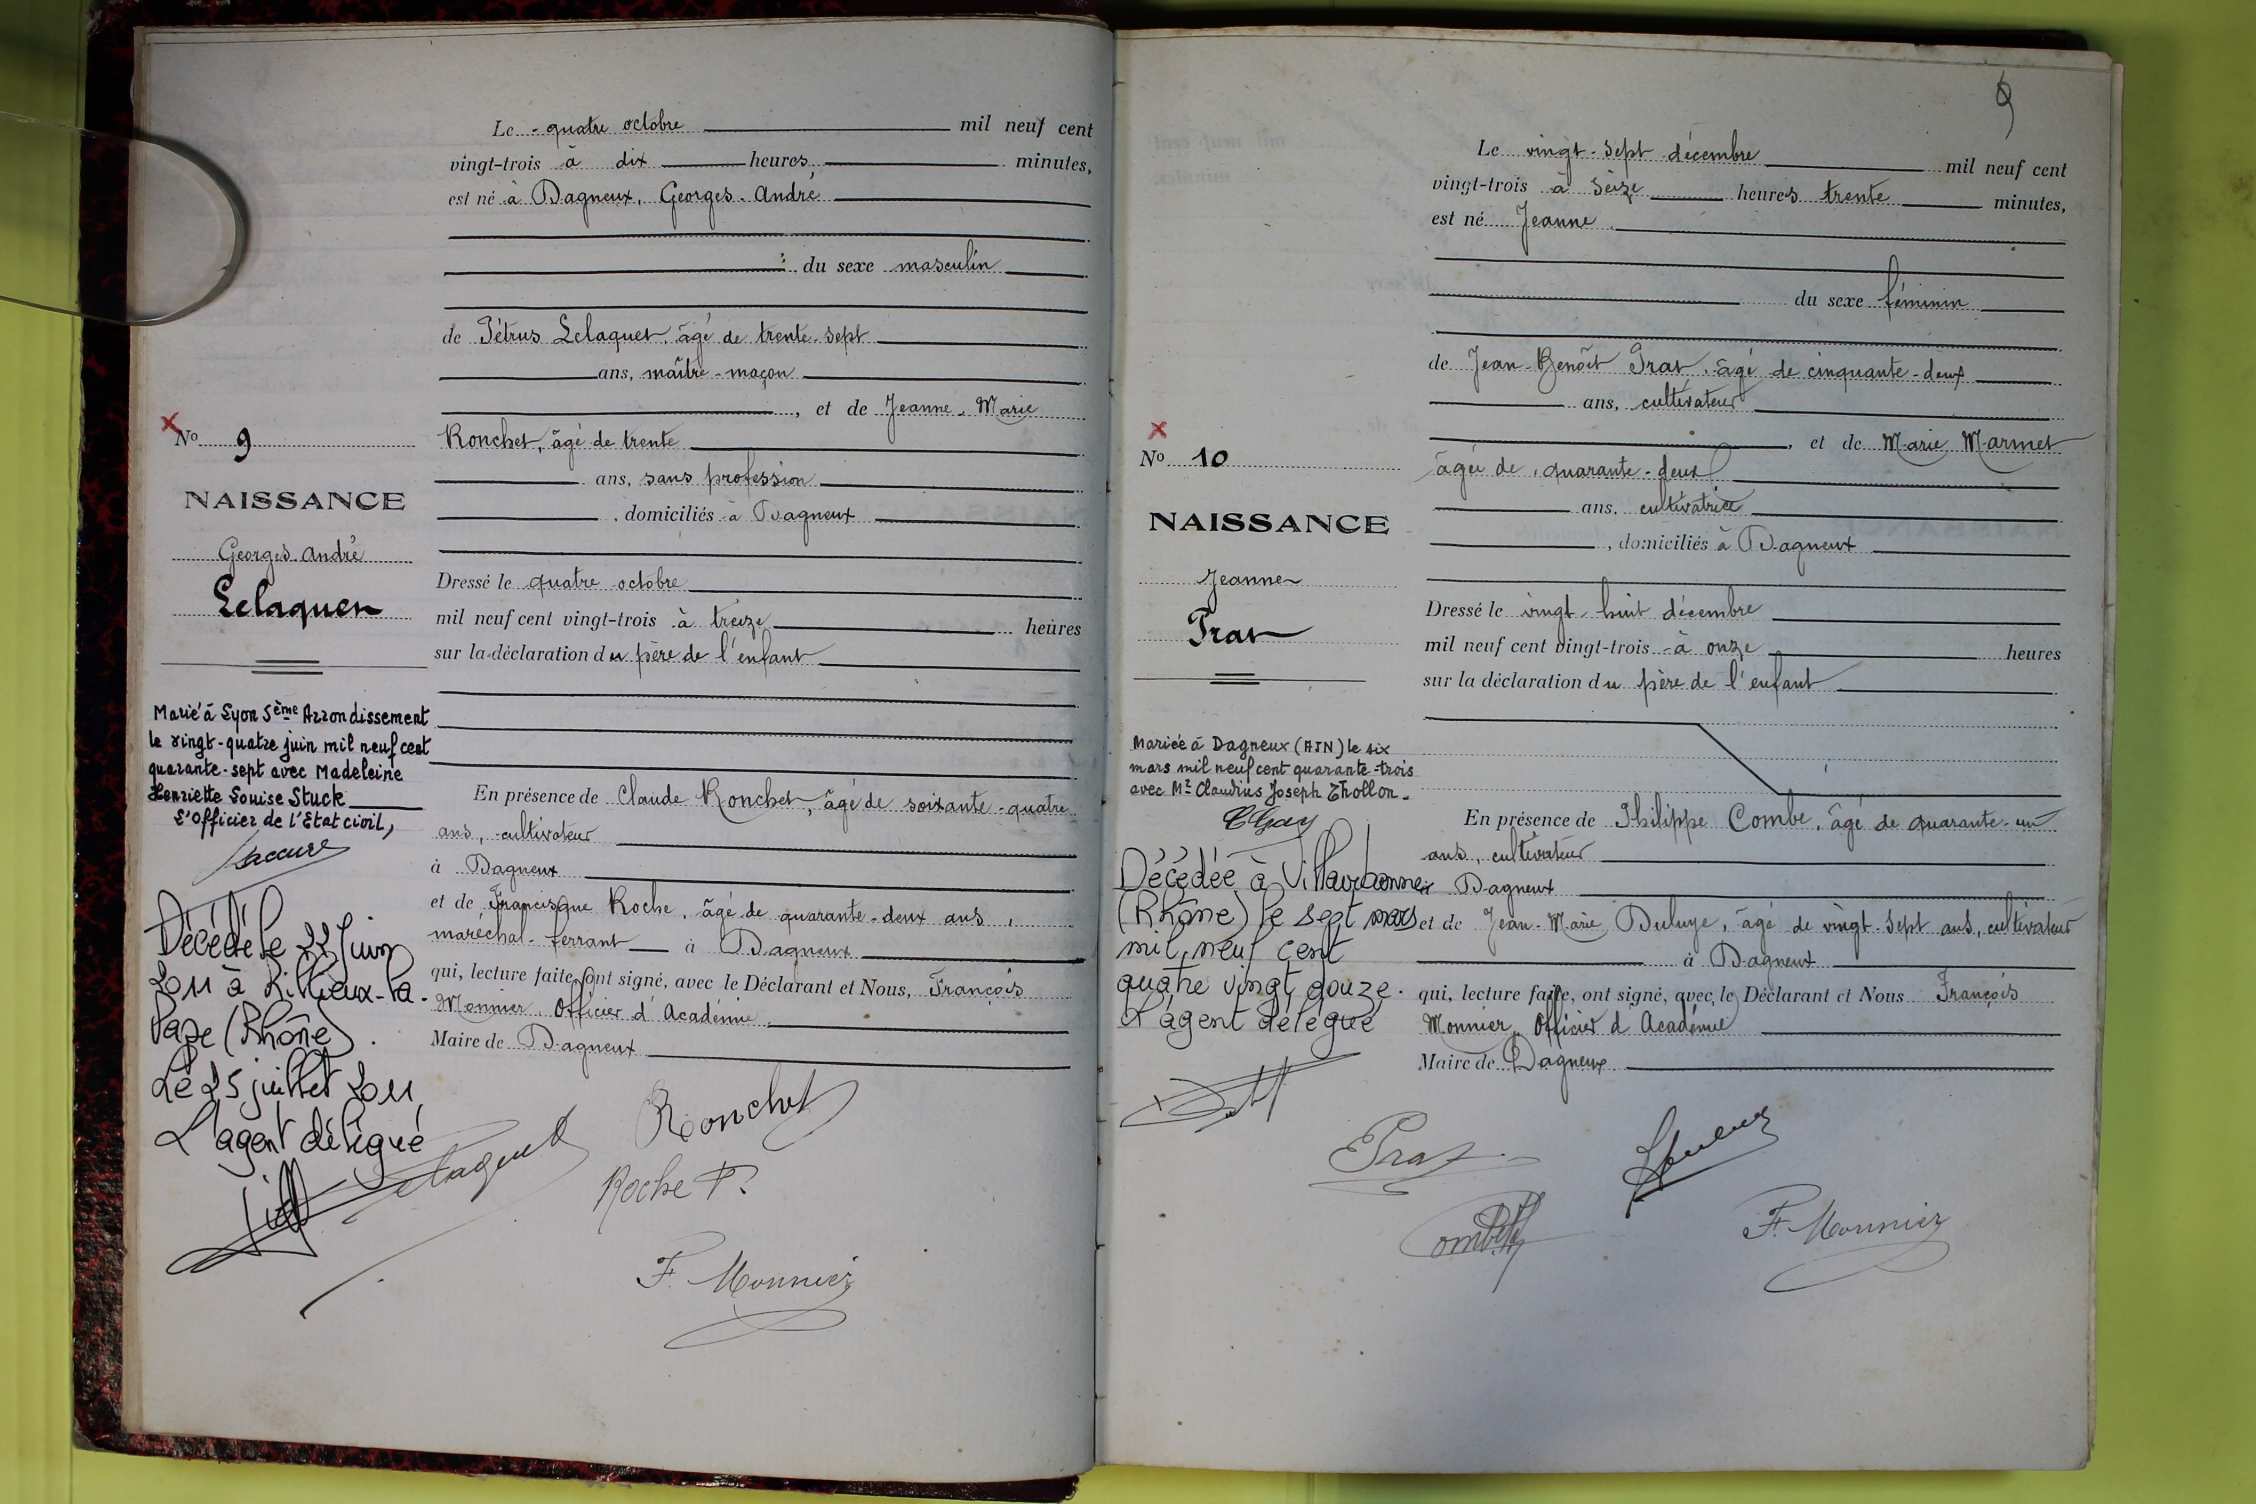 Le quatre octobre mil neuf cent
vingt-trois à dix heures minutes,
est né à Dagneux, Georges André
du sexe masculin
de Pétrus Lelaquet, âgé de trente-sept
ans, maître-maçon
, et de Jeanne-Marie
Ronchet, âgé de trente
ans, sans profession
, domiciliés à Dagneux
Dressé le quatre octobre
mil neuf cent vingt-trois à treize heures
sur la déclaration du père de l'enfant
En présence de Claude Ronchet, âgé de soixante-quatre
ans, cultivateur
à Dagneux
et de Francisque Roche, âgé de quarante-deux ans,
maréchal-ferrant à Dagneux
qui, lecture faite, ont signé, avec le Déclarant et Nous, François
Monnier, Officier d'Académie,
Maire de Dagneux
No 9
NAISSANCE
Georges André
Lelaquet
Marié à Lyon 5ème Arrondissement
le vingt-quatre juin mil neuf cent
quarante-sept avec Madeleine
Henriette Louise Stuck
L'Officier de l'Etat civil,
Décédé le 22 Juin
2011 à Rillieux-la-
Pape (Rhône).
Le 25 juillet 2011
L'agent délégué
Lelaquet
Ronchet
Roche F.
F. Monnier
9
Le vingt-sept décembre mil neuf cent
vingt-trois à seize heures trente minutes,
est né Jeanne
du sexe féminin
de Jean-Benoît Prat, âgé de cinquante-deux
ans, cultivateur
, et de Marie Marmet
âgée de quarante-deux
ans, cultivatrice
, domiciliés à Dagneux
Dressé le vingt-huit décembre
mil neuf cent vingt-trois à onze heures
sur la déclaration du père de l'enfant
En présence de Philippe Combe, âgé de quarante-un
ans, cultivateur
à Dagneux
et de Jean-Marie Duluye, âgé de vingt-sept ans, cultivateur
à Dagneux
qui, lecture faite, ont signé, avec le Déclarant et Nous François
Monnier, Officier d'Académie
Maire de Dagneux
No 10
NAISSANCE
Jeanne
Prat
Mariée à Dagneux (AIN) le six
mars mil neuf cent quarante-trois
avec Mr Claudius Joseph Thollon.
Décédée à Villeurbanne
(Rhône) le sept mars
mil neuf cent
quatre vingt douze.
L'agent délégué
Prat
Combe
F. Monnier